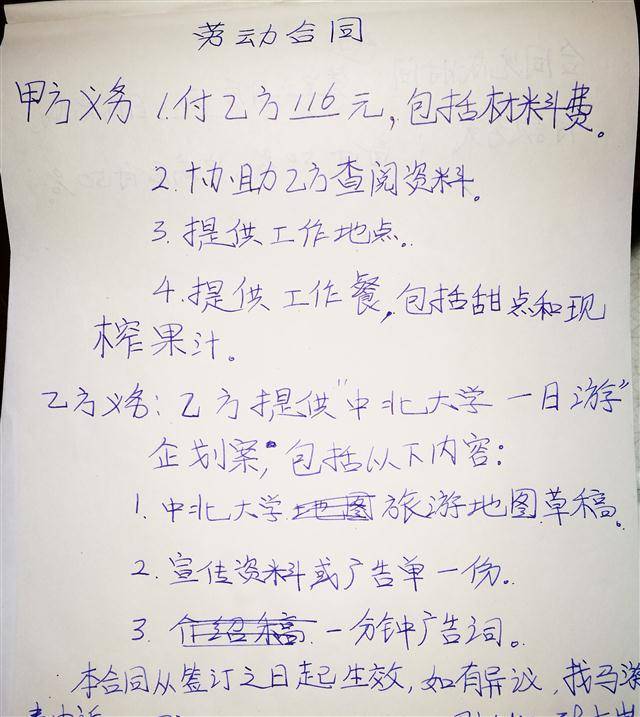 劳动合同
甲方义务 1.付乙方116元,包括材料费。
2.协助乙方查阅资料。
3.提供工作地点.
4.提供工作餐,包括甜点和现
榨果汁。
乙方义务:乙方提供"中北大学一日游"
企划案,包括以下内容:
1.中北大学旅游地图草稿。
2.宣传资料或广告单一份.
3.一分钟广告词。
本合同从签订之日起生效,如有异议,找马